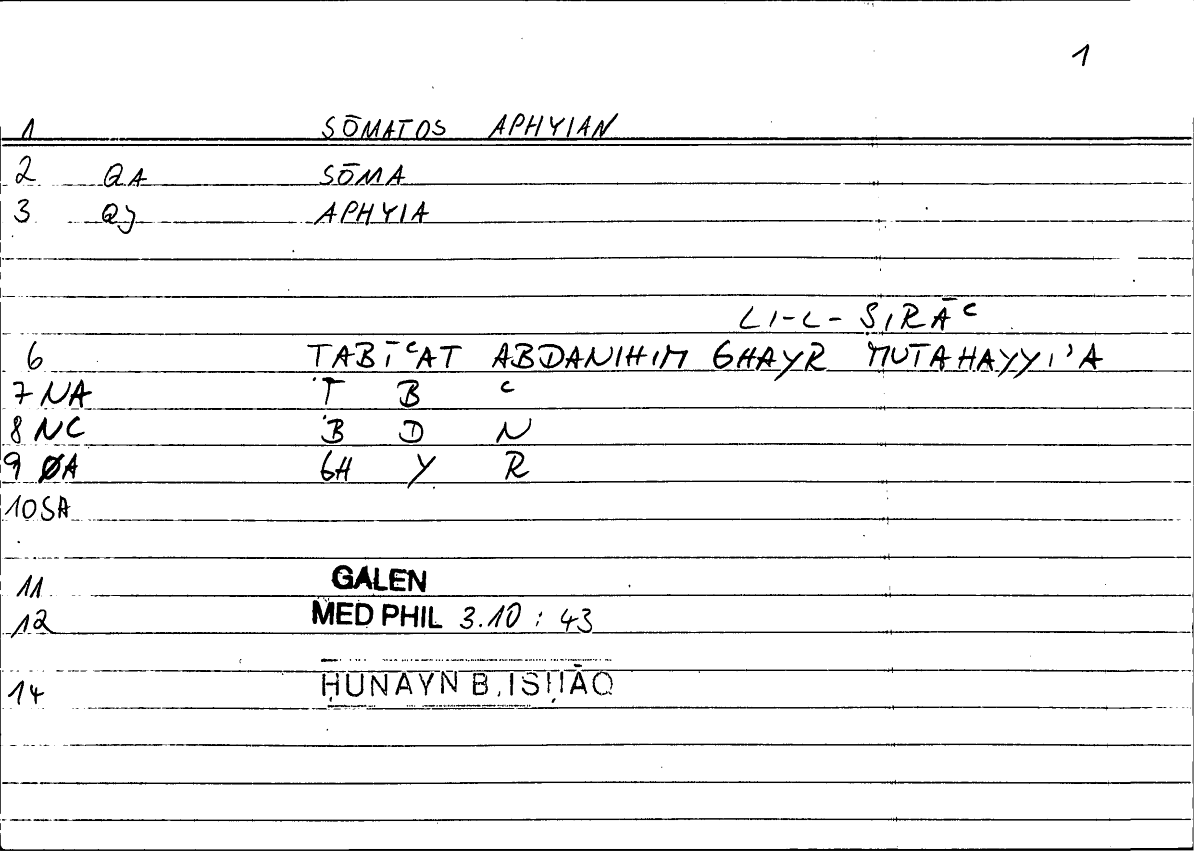 1
1 SŌMATOS APHYIAN
2 QA SŌMA
3 QJ APHYIA
LI-L-ṢIRĀʿ
6 ṬABĪʿAT ABDANIHIM GHAYR MUTAHAYYI'A
7 NA Ṭ B ʿ
8 NC B D N
9 ØA GH Y R
10 SA
11 GALEN
12 MED PHIL 3.10 : 43
14 ḤUNAYN B. ISḤĀQ